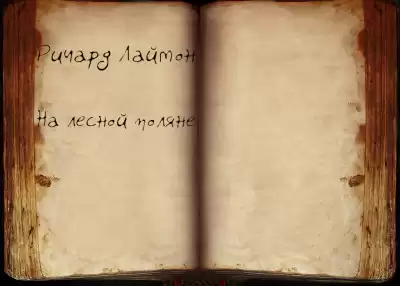 Ричард Лаймон
На лесной поляне